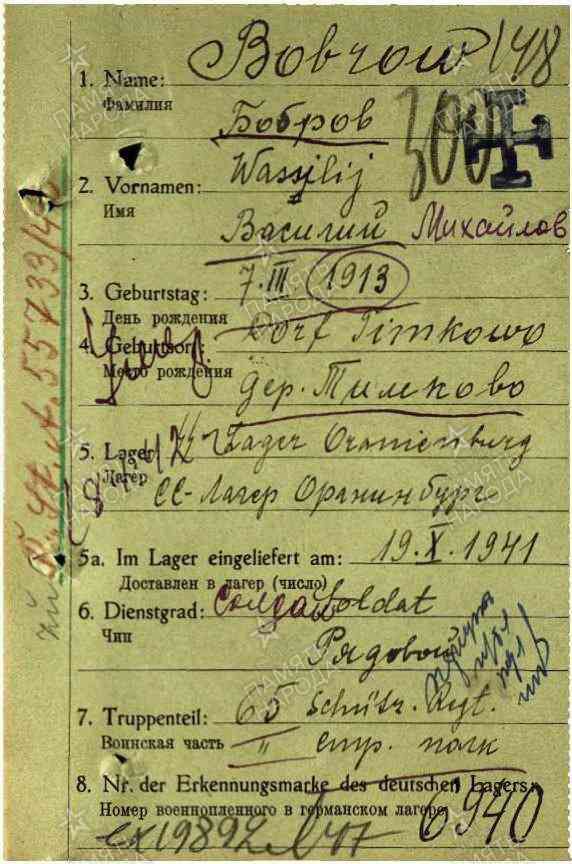 Bobrow 148
1. Name:
Фамилия
Бобров
300
Wassilij
2. Vornamen:
Имя
Василий Михайлов
7. III 1913
3. Geburtstag:
День рождения
Dorf Timkowo
4. Geburtsort:
Место рождения
дер. Тимково
умер
5. Lager:
Лагер
Lager Oranienburg
СС-Лагер Оранинбург
5a. Im Lager eingeliefert am: 19. X. 1941
Доставлен в лагер (число)
6. Dienstgrad: Soldat
солдат
Чин
Рядовой
7. Truppenteil: 65 Schütz. Rgt.
Воинская часть
" стр. полк
8. Nr. der Erkennungsmarke des deutschen Lagers:
Номер военнопленного в германском лагере
6940
55733/42
ПАМЯТЬ НАРОДА